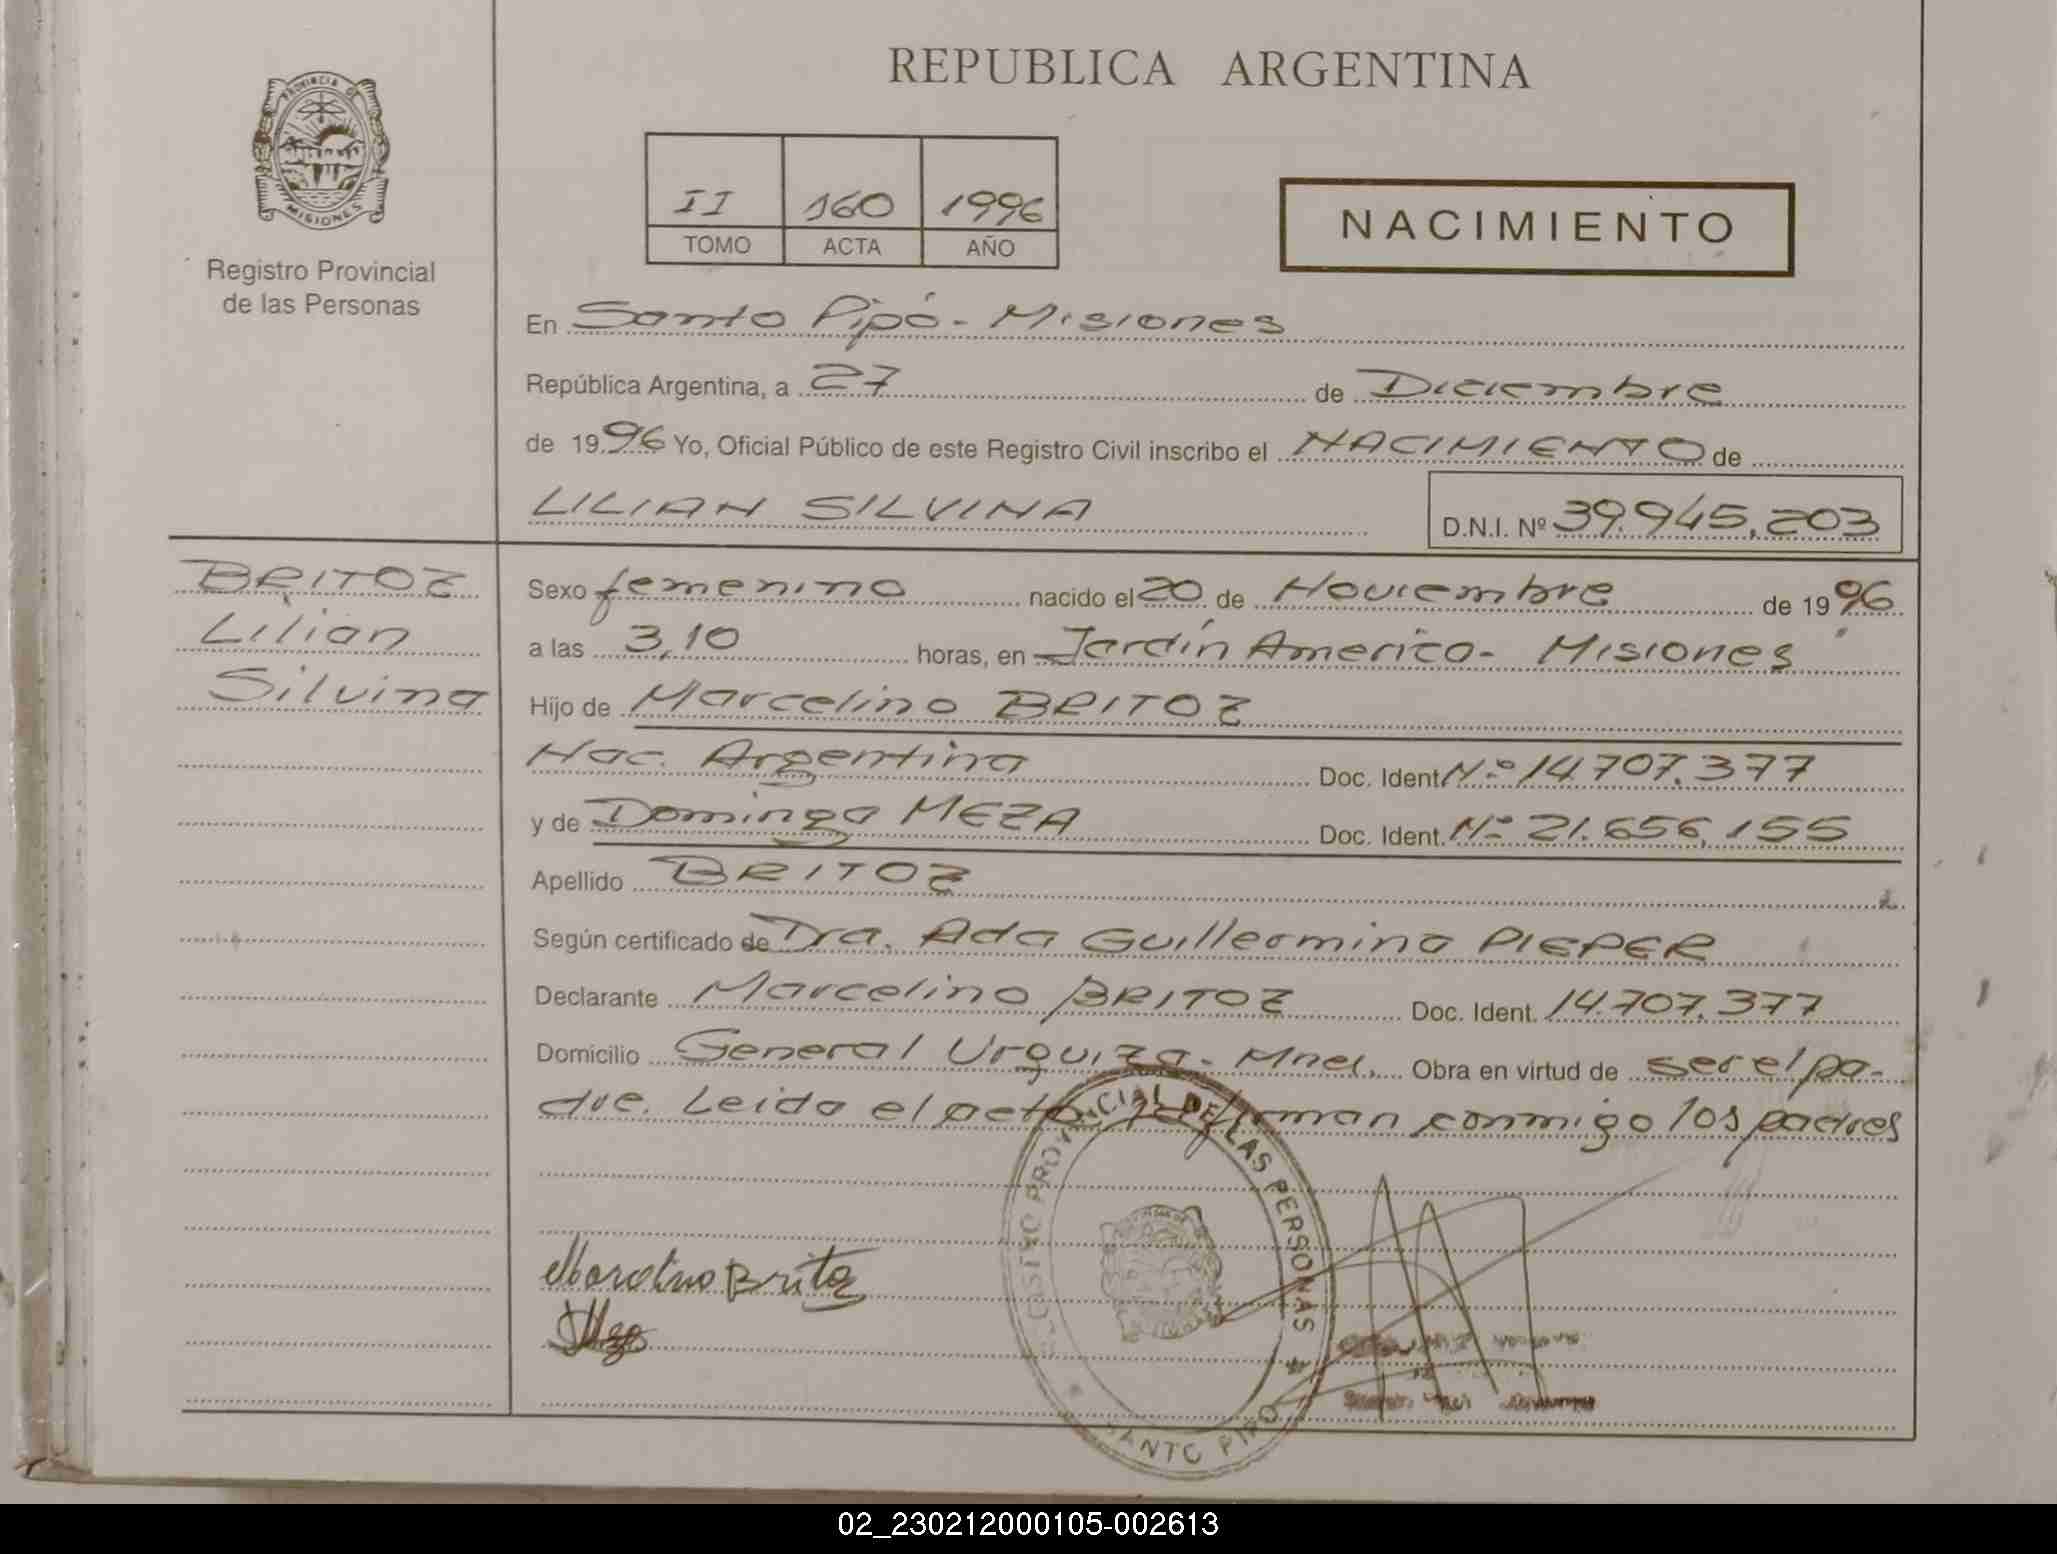 REPUBLICA ARGENTINA
PROVINCIA DE MISIONES
Registro Provincial
de las Personas
II 160 1996
TOMO ACTA AÑO
NACIMIENTO
En Santo Pipó - Misiones
República Argentina, a 27 de Diciembre
de 1996 Yo, Oficial Público de este Registro Civil inscribo el NACIMIENTO de
LILIAN SILVINA D.N.I. Nº 39.945.203
BRITOZ
Lilian
Silvina
Sexo femenino nacido el 20 de Noviembre de 1996
a las 3,10 horas, en Jardín America - Misiones
Hijo de Marcelino BRITOZ
Nac. Argentina Doc. Ident. Nº 14.707.377
y de Dominga MEZA Doc. Ident. Nº 21.656.155
Apellido BRITOZ
Según certificado de Dra. Ada Guillermina PIEPER
Declarante Marcelino BRITOZ Doc. Ident. 14.707.377
Domicilio General Urquiza - Mnes. Obra en virtud de ser el pa-
dre. Leida el acta la firman conmigo los padres
REGISTRO PROVINCIAL DE LAS PERSONAS
SANTO PIPO
Marcelino Britoz
02_230212000105-002613